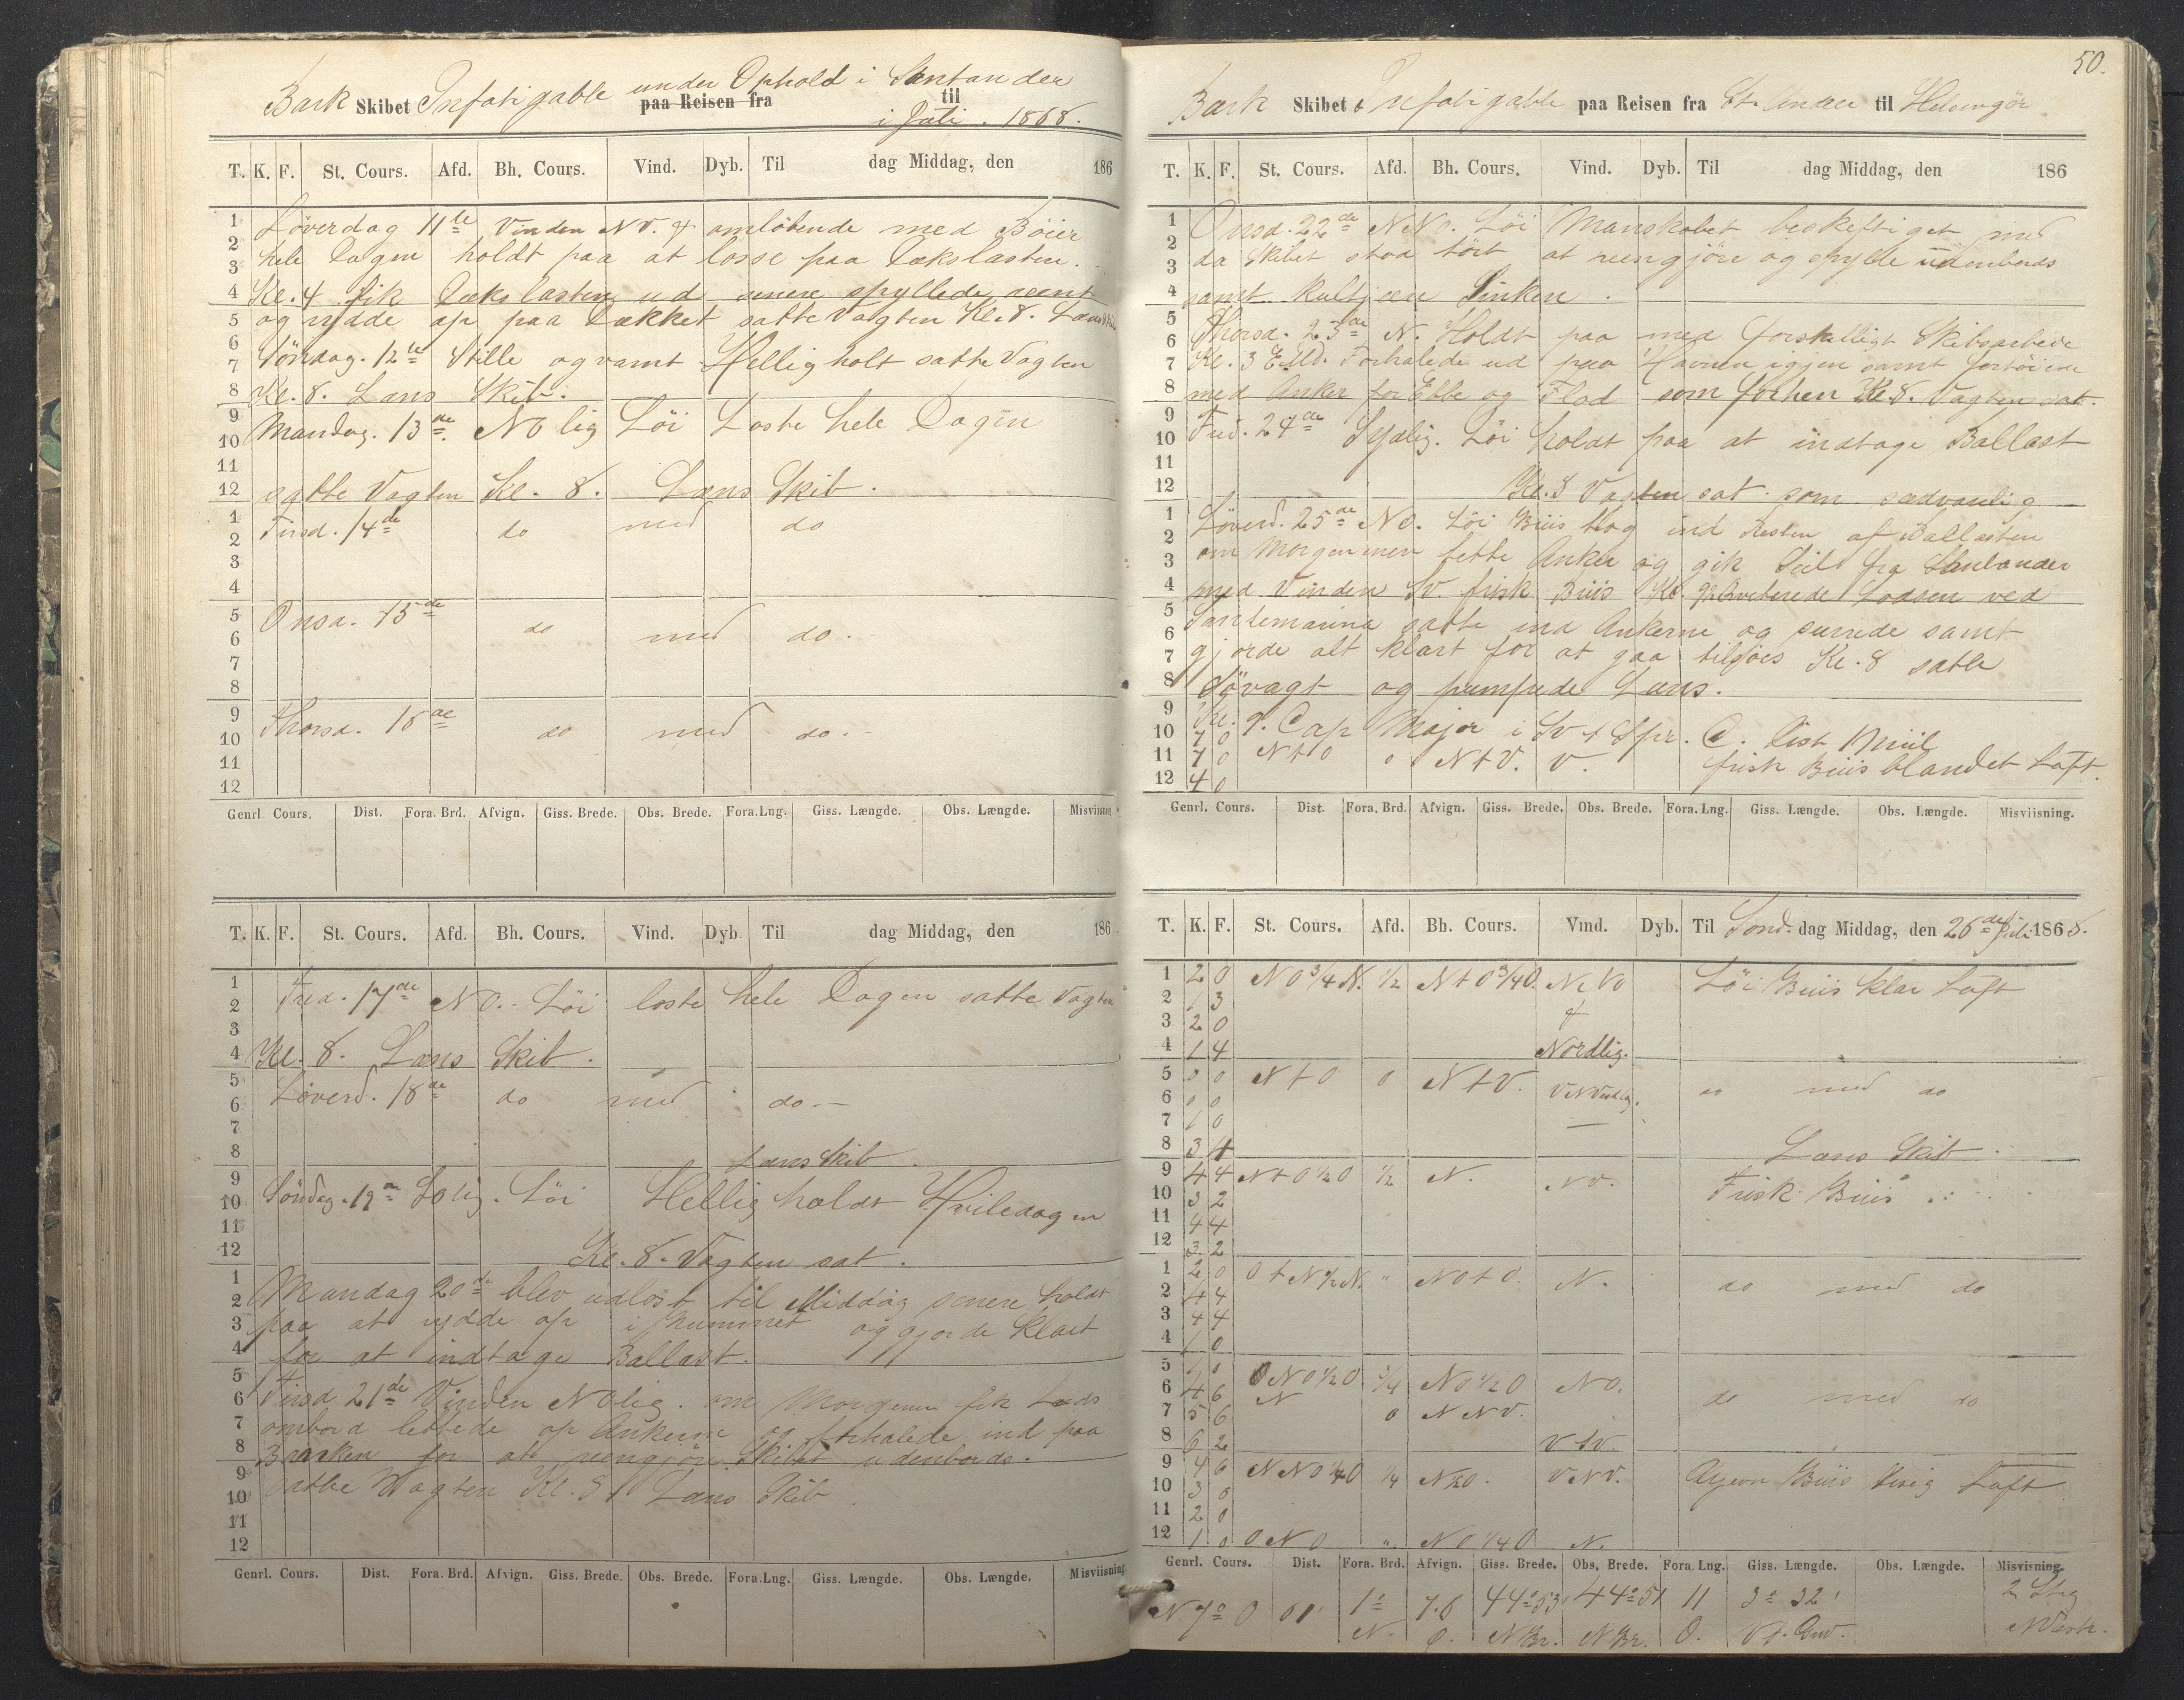 Bark Skibet Infatigable under Ophold i Santander
paa Reisen fra til
i Juli. 1868.
T. K. F. St. Cours. Afd. Bh. Cours. Vind. Dyb. Til dag Middag, den 186
Löverdag 11te Vinden NV. & omløbende med Böier
hele Dagen holdt paa at losse paa Dækslasten.
Kl. 4 fik Dækslasten ud senere spyllede reent
og rydde op paa Dækket satte Vagten Kl. 8. Læns Skib
Söndag. 12te Stille og varmt Hellig holt satte Vagten
Kl. 8. Læns Skib.
Mandag. 13de NO lig Löi Loste hele Dagen
satte Vagten Kl. 8. Læns Skib.
Tirsd. 14de do med do
Onsd. 15de do med do.
Thorsd. 16de do med do.
1 2 3 4 5 6 7 8 9 10 11 12
1 2 3 4 5 6 7 8 9 10 11 12
Genrl. Cours. Dist. Fora. Brd. Afvign. Giss. Brede. Obs. Brede. Fora. Lng. Giss. Længde. Obs. Længde. Misviisning
T. K. F. St. Cours. Afd. Bh. Cours. Vind. Dyb. Til dag Middag, den 186
Fred. 17de NO. Löi loste hele Dagen satte Vagten
Kl. 8. Læns Skib.
Löverd. 18de do med do
Læns Skib.
Söndag. 19de Lölig. Löi Hellig holdt Hviledagen
Kl. 8. Vagten sat.
Mandag 20de blev udlost til Middag senere holdt
paa at rydde op i Rummet og gjorde klart
for at indtage Ballast.
Tirsd 21de Vinden NO lig. om Morgenen fik Lods
ombord lettede op Ankerne og forhalede ind paa
Banken for at reengjöre Skibet udenbords.
satte Vagten Kl. 8 Læns Skib
1 2 3 4 5 6 7 8 9 10 11 12
1 2 3 4 5 6 7 8 9 10 11 12
Genrl. Cours. Dist. Fora. Brd. Afvign. Giss. Brede. Obs. Brede. Fora. Lng. Giss. Længde. Obs. Længde. Misviisning
50.
Bark Skibet Infatigable paa Reisen fra St. Ander til Helsingör
T. K. F. St. Cours. Afd. Bh. Cours. Vind. Dyb. Til dag Middag, den 186
Onsd. 22de NNO. Löi Manskabet beskeftiget med
da Skibet stod tört at reengjöre og spylle udenbords
samt kultjære Sinken.
Thorsd. 23de N. Holdt paa med forskelligt Skibsarbeide
Kl. 3 E.Md. Forhalede ud paa Havnen igjen samt fortöiede
med Anker for Ebbe og Flod som forhen Kl. 8. Vagten sat.
Fred. 24de Sydlig. Löi holdt paa at indtage Ballast
Kl. 8 Vagten sat som sædvanlig
Löverd. 25de NO. Löi Briis tog ind Resten af Ballasten
om Morgenen lette Anker og gik Seil fra Santander
med Vinden SV. frisk Briis Kl. qviterede Lodsen ved
satte ind Ankerne og surrede samt
gjorde alt klart for at gaa tilsjös Kl. 8 satte
Sövagt og pumpede Læns.
Kl. 9. Cap Major i Sv. t. S pr. C. Dist 1 Miil
7 0 N t O 0 N t V. V. frisk Briis blandet Luft.
7 0
4 0
1 2 3 4 5 6 7 8 9 10 11 12
1 2 3 4 5 6 7 8 9 10 11 12
Genrl. Cours. Dist. Fora, Brd. Afvign. Giss. Brede. Obs. Brede. Fora. Lng. Giss. Længde. Obs. Længde. Misviisning.
T. K. F. St. Cours. Afd. Bh. Cours. Vind. Dyb. Til Sönd. dag Middag, den 26de Juli 1868.
1 2 0 NO 3/4 N. 1/2 N t O 3/4 O. NNV Löi Briis klar Luft
2 1 3 &
3 2 0
4 1 4 Nordlig.
5 0 0 N t O 0 N t V. VNVestlig. do med do
6 0 0
7 1 0
8 3 4 Læns Skib.
9 4 4 N t O 1/2 O 1/2 N. NV. Frisk Briis
10 3 2
11 4 4
12 3 2
1 2 0 O t N 1/2 N. " NO t O. N. do med do
2 4 4
3 4 4
4 1 0
5 1 0 ONO 1/2 O 3/4 NO 1/2 O NO. do med do
6 4 6 N 0 NNV.
7 5 6
8 6 2 VSV.
9 4 6 NNO 1/4 O 1/4 VNV. Briis Luft
10 3 0
11 2 0
12 1 0 ONO " NO 1/4 O N.
Genrl. Cours. Dist. Fora. Brd. Afvign. Giss. Brede. Obs, Brede. Fora. Lng. Giss. Længde. Obs. Længde. Misvisning.
N 7° O 61' 1° 7.6 44° 53' 44° 51 11 3° 32' 2 Stg
N. O. N Br. N Br. O. V f. Gw. NVestr.